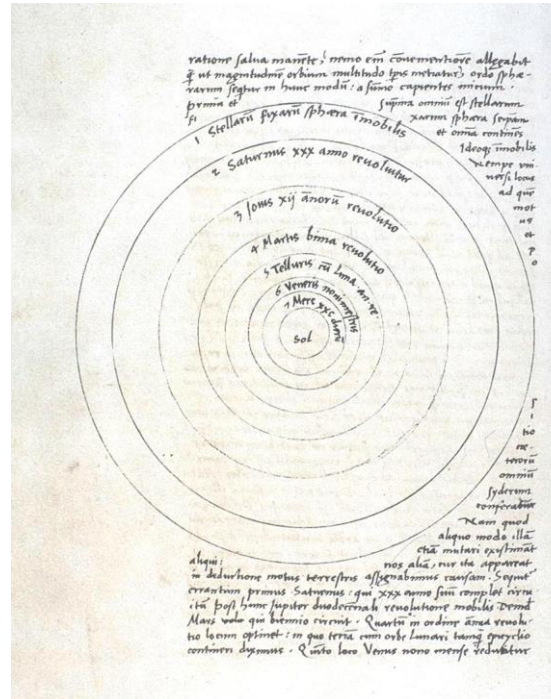 ratione salua manēte, nemo em̄ cōuenientiorē allegabit
q̃ ut magnitudinē orbium multitudo tp̄is metiatur, ordo sphæ-
rarum seqtur in hunc modū: a sūmo capientes initium.
prima et suprema omniū est stellarum
fi xarum sphæra seipsam
et omnia continēs
Ideoq; īmobilis
Nempe uni
uersi locus
ad quē
mot
us
et
p
o
1 Stellarū fixarū sphæra īmobilis
2 Saturnus xxx anno reuoluitur
3 Jouis xij annorū reuolutio
4 Martis bima reuolutio
5 Telluris cū Luna an. re
6 Veneris nonimestris
7 Merc xxc dierū
Sol
s
i
tio
cæ-
terorū
omniū
syderum
conferatur
Nam quod
aliquo modo illā
etiā mutari existimāt
aliqui: nos aliā, cur ita appareat
in deductione motus terrestris assignabimus causam. Sequit
errantium primus Saturnus: qui xxx anno suū complet circu
itū Post hunc Jupiter duodecennali reuolutione mobilis Deinde
Mars uolo qui biennio circuit. Quartū in ordine ānua reuolu-
tio locum optinet: in quo terrā cum orbe Lunari tanq̃ epicyclo
contineri diximus. Quinto loco Venus nono mense reducitur